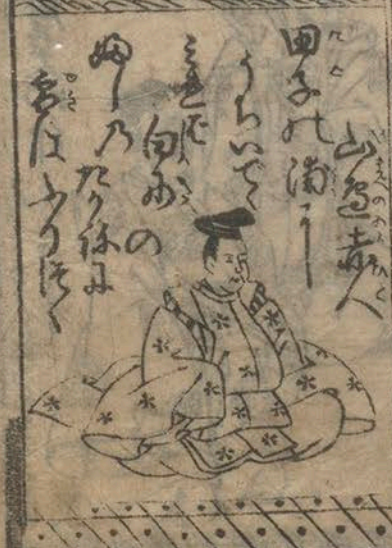 山邉赤人
田子の浦に
うちいでゝ
みれば
白妙の
婦し乃
たかねに
雪はふりつゝ